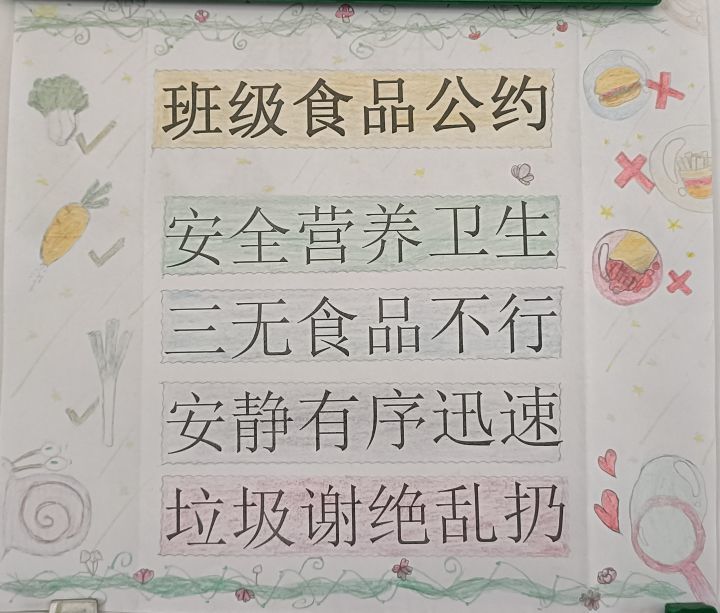 班级食品公约
安全营养卫生
三无食品不行
安静有序迅速
垃圾谢绝乱扔